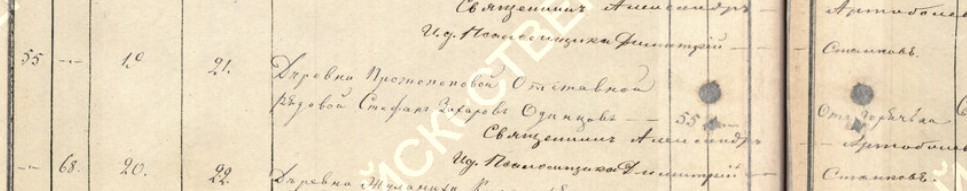 Священникъ Александръ Артоболев
И.д. Псаломщика Димитрій Станковъ.
55 19 21. Деревни Протопоповой Отставной
рядовой Стефанъ Захаровъ Одинцовъ 55 Отъ Горячки
Священникъ Александръ Артоболев
И.д. Псаломщика Димитрій Станковъ.
68. 20. 22. Деревни